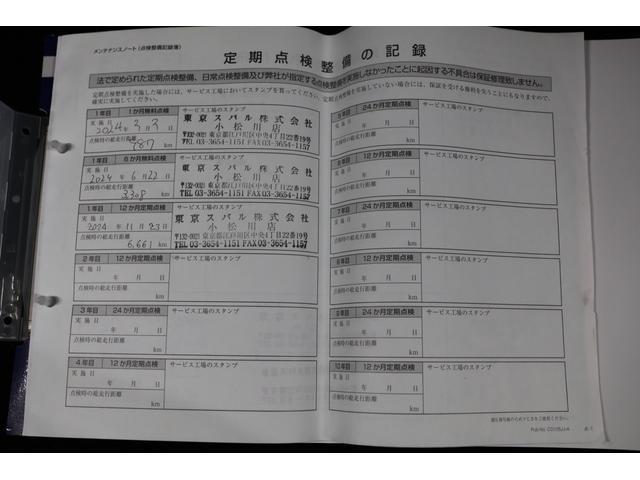 メンテナンスノート(点検整備記録簿)
定期点検整備の記録
法で定められた定期点検整備、日常点検整備及び弊社が指定する点検整備を実施しなかったことに起因する不具合は保証修理致しません。
定期点検整備を実施した場合には、サービス工場においてスタンプを買ってください。定期点検整備を実施していない場合には、保証を受ける権利を失うことにもなりますので、
確実に実施してください。
1年目 1か月無料点検 サービス工場のスタンプ
実施日
2024年3月3日
点検時の総走行距離
687 km
東京スバル株式会社
小松川店
〒132-0021 東京都江戸川区中央4丁目22番19号
TEL 03-3654-1151 FAX 03-3654-1157
1年目 6か月無料点検 サービス工場のスタンプ
実施日
2024年6月22日
点検時の総走行距離
3,308 km
東京スバル株式会社
小松川店
〒132-0021 東京都江戸川区中央4丁目22番19号
TEL 03-3654-1151 FAX 03-3654-1157
1年目 12か月定期点検 サービス工場のスタンプ
実施日
2024年11月23日
点検時の総走行距離
6,661 km
東京スバル株式会社
小松川店
〒132-0021 東京都江戸川区中央4丁目22番19号
TEL 03-3654-1151 FAX 03-3654-1157
2年目 12か月定期点検 サービス工場のスタンプ
実施日
年 月 日
点検時の総走行距離
km
3年目 24か月定期点検 サービス工場のスタンプ
実施日
年 月 日
点検時の総走行距離
km
4年目 12か月定期点検 サービス工場のスタンプ
実施日
年 月 日
点検時の総走行距離
km
5年目 24か月定期点検 サービス工場のスタンプ
実施日
年 月 日
点検時の総走行距離
km
6年目 12か月定期点検 サービス工場のスタンプ
実施日
年 月 日
点検時の総走行距離
km
7年目 24か月定期点検 サービス工場のスタンプ
実施日
年 月 日
点検時の総走行距離
km
8年目 12か月定期点検 サービス工場のスタンプ
実施日
年 月 日
点検時の総走行距離
km
9年目 24か月定期点検 サービス工場のスタンプ
実施日
年 月 日
点検時の総走行距離
km
10年目 12か月定期点検 サービス工場のスタンプ
実施日
年 月 日
点検時の総走行距離
km